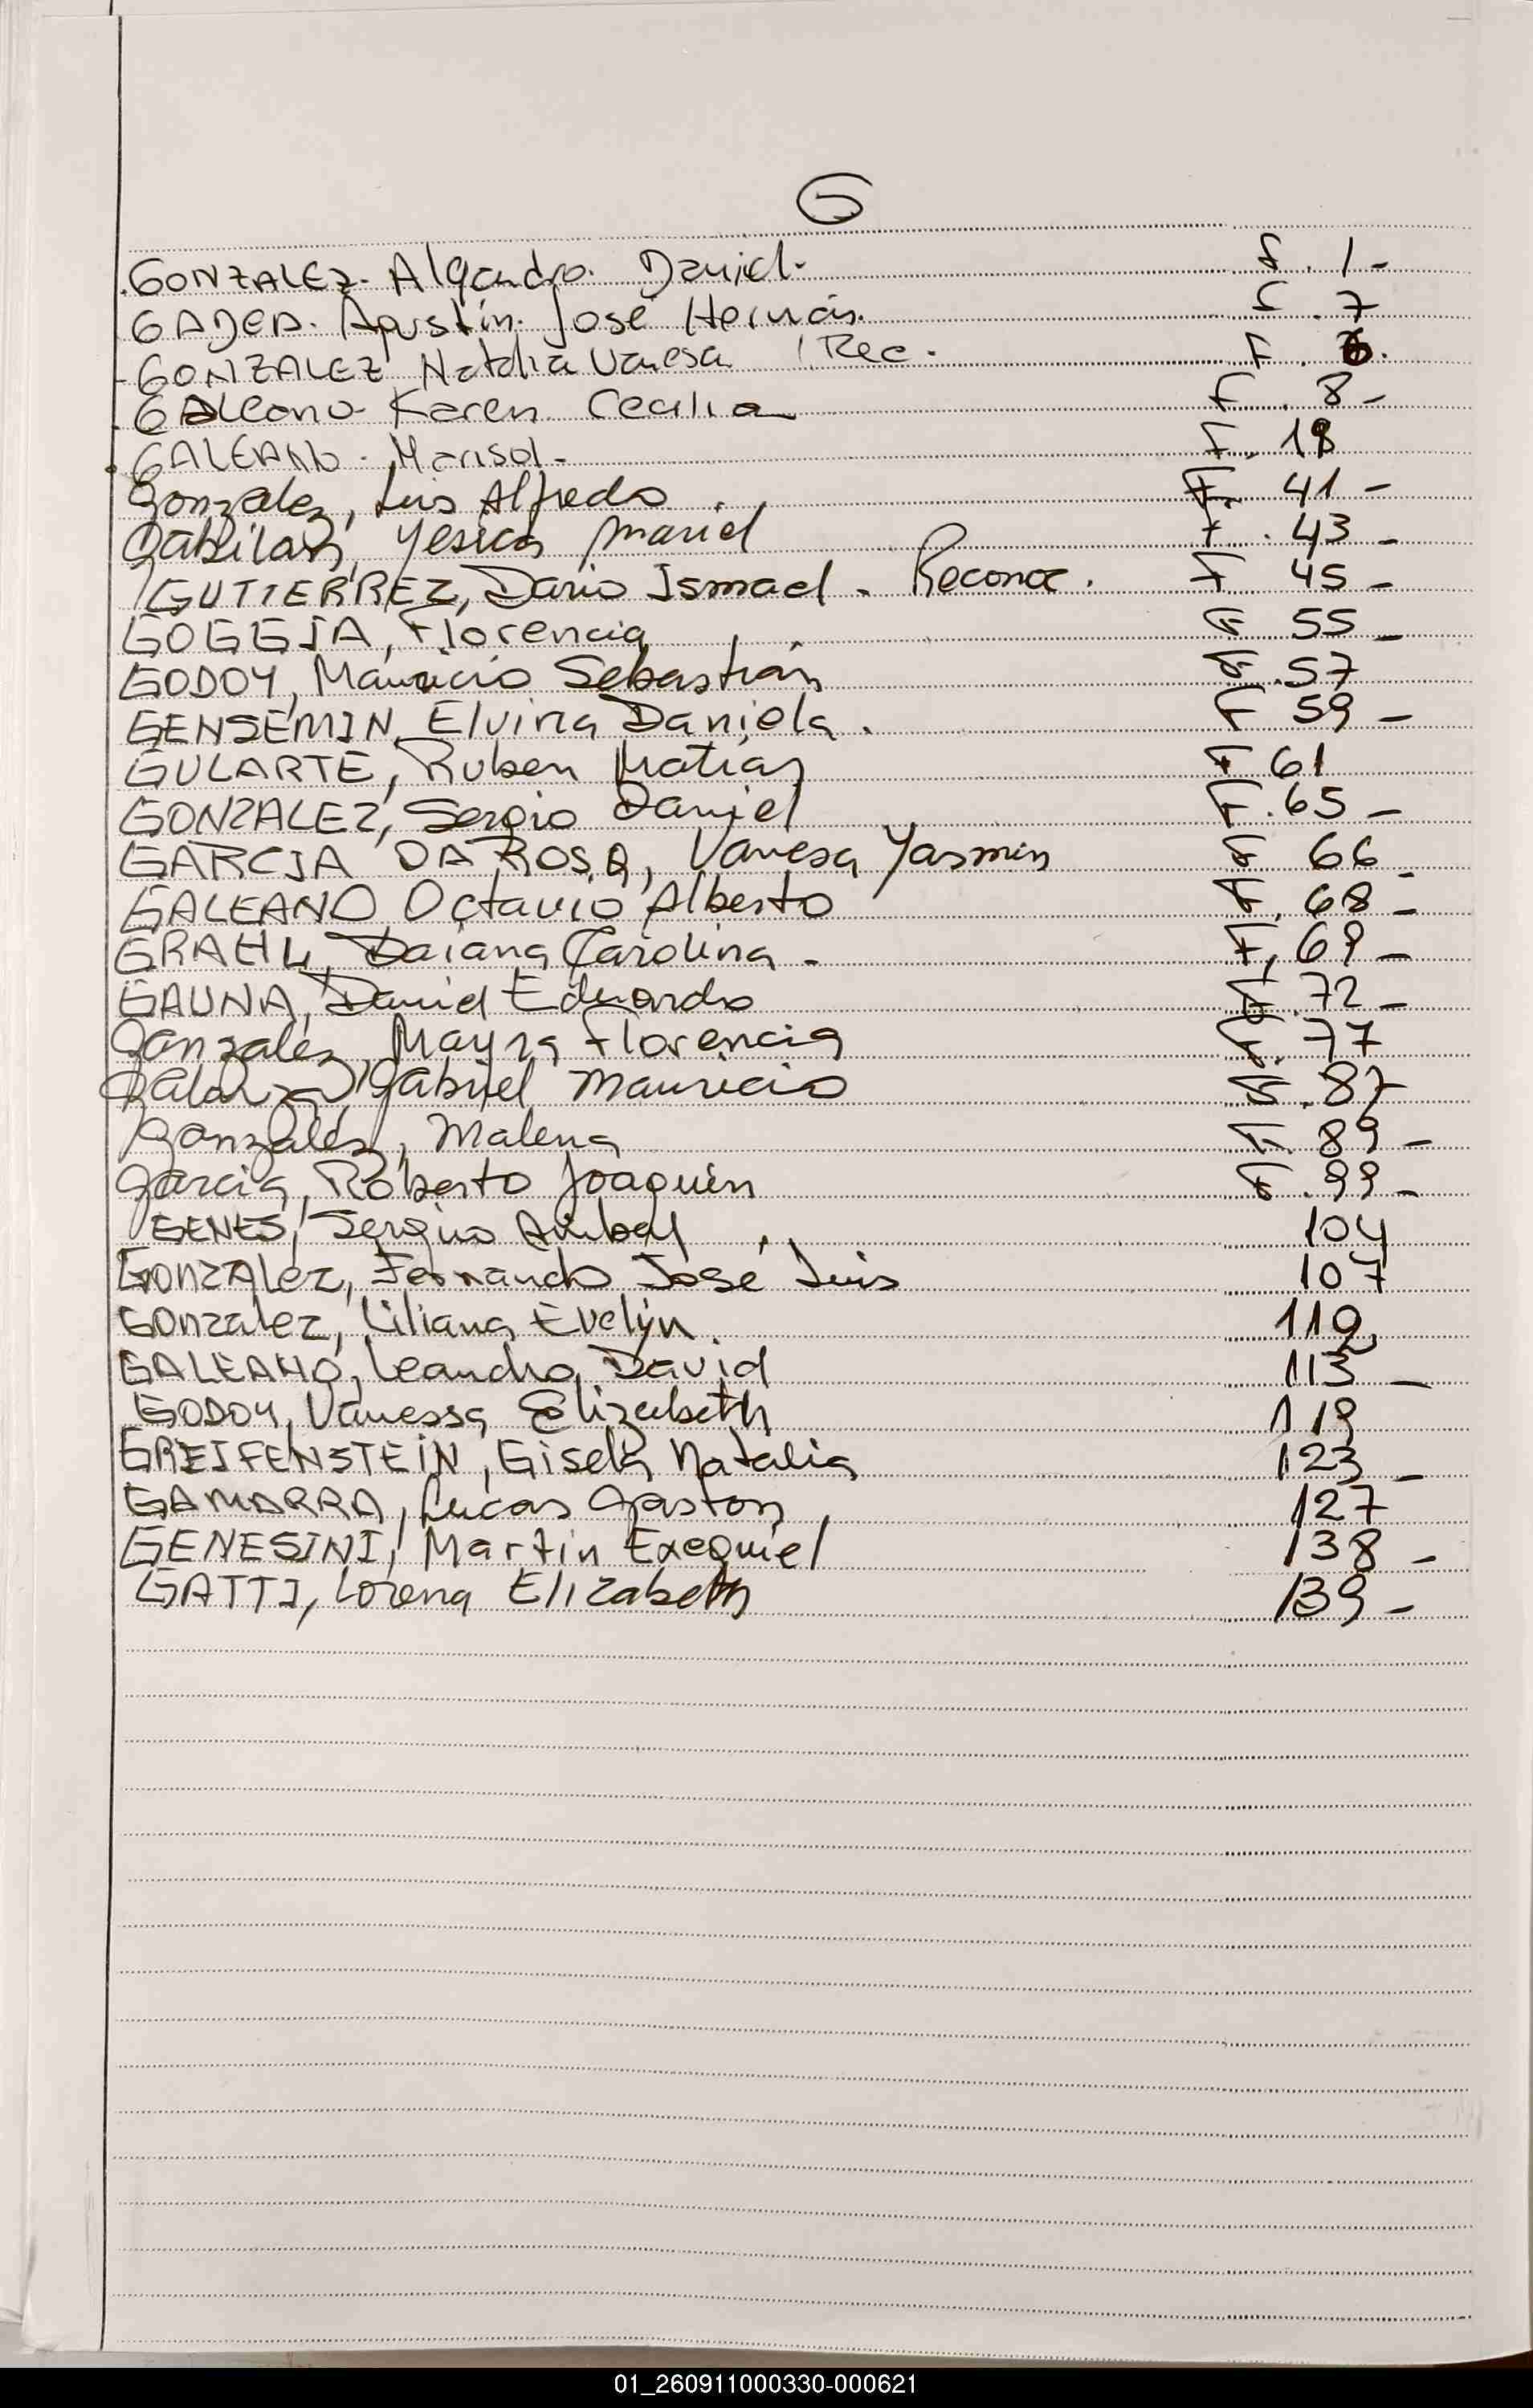 G
GONZALEZ. Alejandro. Daniel. f. 1 -
Agustín. José Hernán. f. 7
GONZALEZ Natalia Vanesa Rec. F.
GALeano Karen Cecilia F. 8 -
GALEANO. Marisol. F. 18
Gonzalez, Luis Alfredo F. 41 -
Yesica Mariel F. 43 -
GUTIERREZ, Dario Ismael. Reconoc. F 45 -
GOGGIA, Florencia F 55 -
GODOY, Mauricio Sebastián F. 57
GENSEMIN, Elvira Daniela. F 59 -
GULARTE, Ruben Matias F 61
GONZALEZ, Sergio Daniel F. 65 -
GARCIA DA ROSA, Vanesa Yasmin F 66
GALEANO Octavio Alberto F. 68 -
GRAHL, Daiana Carolina - F. 69 -
GAUNA, David Eduardo F. 72 -
Gonzalez, Mayra Florencia F. 77
Gabriel Mauricio F. 87
Gonzalez, Malena F. 89 -
Garcia, Roberto Joaquin F. 99 -
GENES, Sergino Anibal 104
GONZALEZ, Fernando José Luis 107
GONZALEZ, Liliana Evelyn. 110
GALEANO, Leandro David 113 -
GODOY, Vanessa Elizabeth 119
GREIFENSTEIN, Gisela Natalia 123 -
GAMARRA, Lucas Gaston 127
GENESINI, Martin Exequiel 138 -
GATTI, Lorena Elizabeth 139 -
01_260911000330-000621